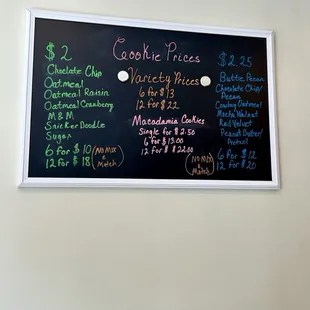 Cookie Prices
$2
Choclate Chip
Oatmeal
Oatmeal Raisin
Oatmeal Cranberry
M&M
Snicker Doodle
Sugar
6 for $10
12 for $18
(No Mix & Match)
Variety Prices
6 for $13
12 for $22
Macadamia Cookies
Single for $2.50
6 for $13.00
12 for $22.00
$2.25
Butter Pecan
Choclate Chip/
Pecan
Cowboy Oatmeal
Mocha Walnut
Red Velvet
Peanut Butter/
Pretzel
6 for $12
12 for $20
(No Mix & Match)